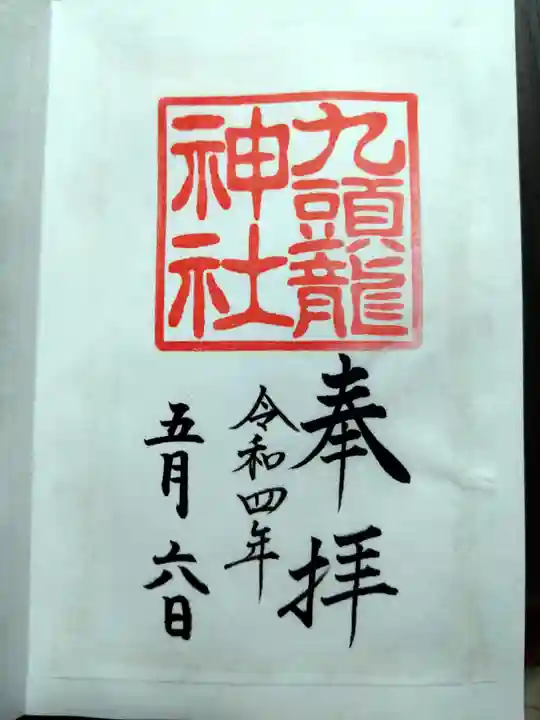 九頭龍
神社
奉拝
令和四年
五月六日